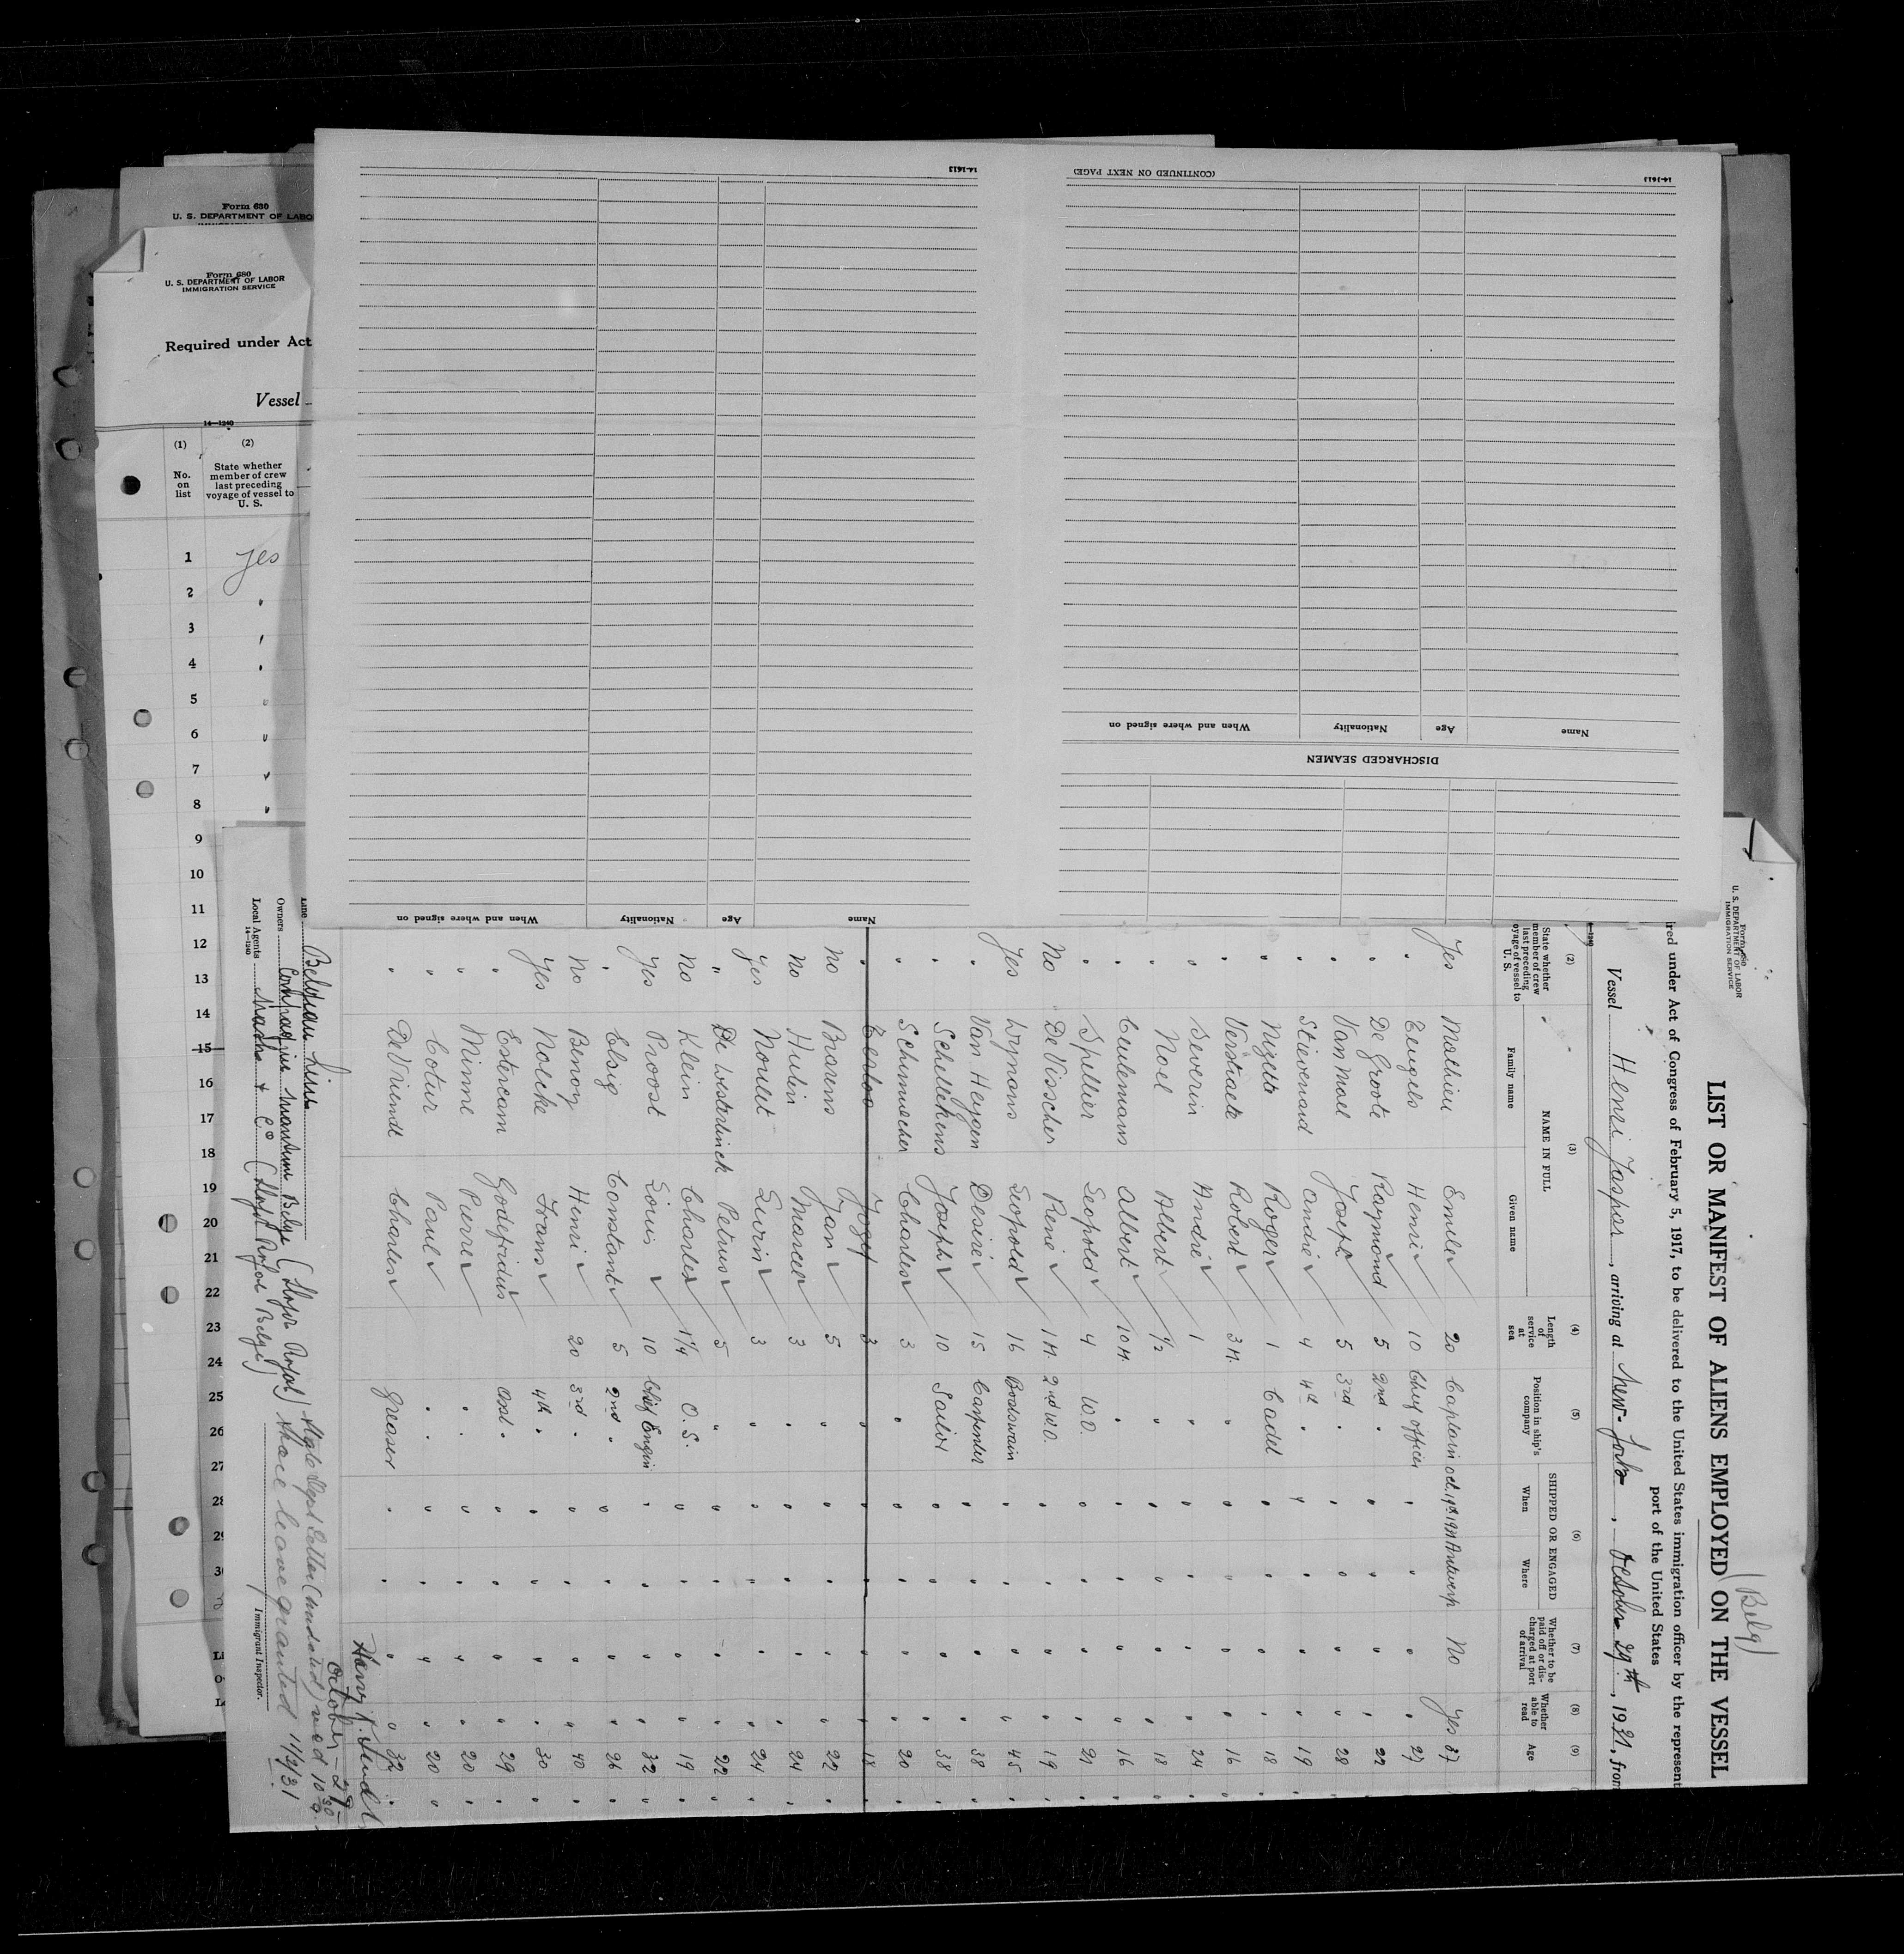 Form 630
U. S. DEPARTMENT OF LABO
Form 680
U. S. DEPARTMENT OF LABOR
IMMIGRATION SERVICE
Required under Act
Vessel
14—1240
(1) (2)
No. on list
State whether member of crew last preceding voyage of vessel to U. S.
1 yes
2 "
3 "
4 "
5 "
6 "
7 "
8 "
9
10
11
12
13
14
15
16
17
18
19
20
21
22
23
24
25
26
27
28
29
30
14-1613
(CONTINUED ON NEXT PAGE)
14-1613
Name Age Nationality When and where signed on
DISCHARGED SEAMEN
Name Age Nationality When and where signed on
U. S. DEPARTMENT OF LABOR
IMMIGRATION SERVICE
(Belg)
LIST OR MANIFEST OF ALIENS EMPLOYED ON THE VESSEL
ired under Act of Congress of February 5, 1917, to be delivered to the United States immigration officer by the represent
port of the United States
Vessel Henri Jaspar, arriving at New-York, October 29th, 1931, from
(2) (3) (4) (5) (6) (7) (8) (9)
State whether member of crew last preceding voyage of vessel to U. S.
NAME IN FULL
Family name Given name
Length of service at sea
Position in ship's company
SHIPPED OR ENGAGED
When Where
Whether to be paid off or discharged at port of arrival
Whether able to read
Age
Yes Mathieu Emile 20 Captain Oct. 19th 1931 Antwerp No Yes 37
" Teugels Henri 10 Chief officer " " " " 27
" De Groote Raymond 5 2nd " " " " " 22
" Van Mael Joseph 5 3rd " " " " " 28
" Stievenard André 4 4th " " " " " 19
" Nizette Roger 1 Cadet " " " " 18
" Vestraete Robert 3 M. " " " " " 16
" Severin André 1 " " " " " 24
" Noel Albert 1/2 " " " " " 18
" Ceulemans Albert 10 M. " " " " " 16
" Spellier Leopold 4 W.O. " " " " 21
No De Visscher René 1 M. 2nd W.O. " " " " 19
Yes Wynans Leopold 16 Boatswain " " " " 45
" Van Heygen Desiré 15 Carpenter " " " " 38
" Schellekens Joseph 10 Sailor " " " " 38
" Schumacher Charles 3 " " " " " 20
" Jozef 3 " " " " " 18
No Braems Jan 5 " " " " " 22
No Hubin Marcel 3 " " " " " 24
Yes Noulet 3 " " " " " 24
" De Westerlinck Petrus 5 " " " " " 22
No Klein Charles 1 1/4 O. S. " " " " 19
Yes Proost Louis 10 Chief Engin " " " " 32
" Elsig Constant 5 2nd " " " " " 26
No Benoy Henri 20 3rd " " " " " 40
Yes Nolcke Frans 4th " " " " " 30
" Estercam Godefridus " " " " " 29
" Minne Pierre " " " " " 20
" Cotur Paul " " " " " 20
" De Vriendt Charles Greaser " " " " 32
Line Belgian Line
Owners Compagnie Maritime Belge (Lloyd Royal)
Local Agents & Co (Lloyd Royal Belge)
14—1240
October - 29 -
State Dept Letter (undated) recd 10/30
Shore leave granted 11/2/31
Immigrant Inspector.